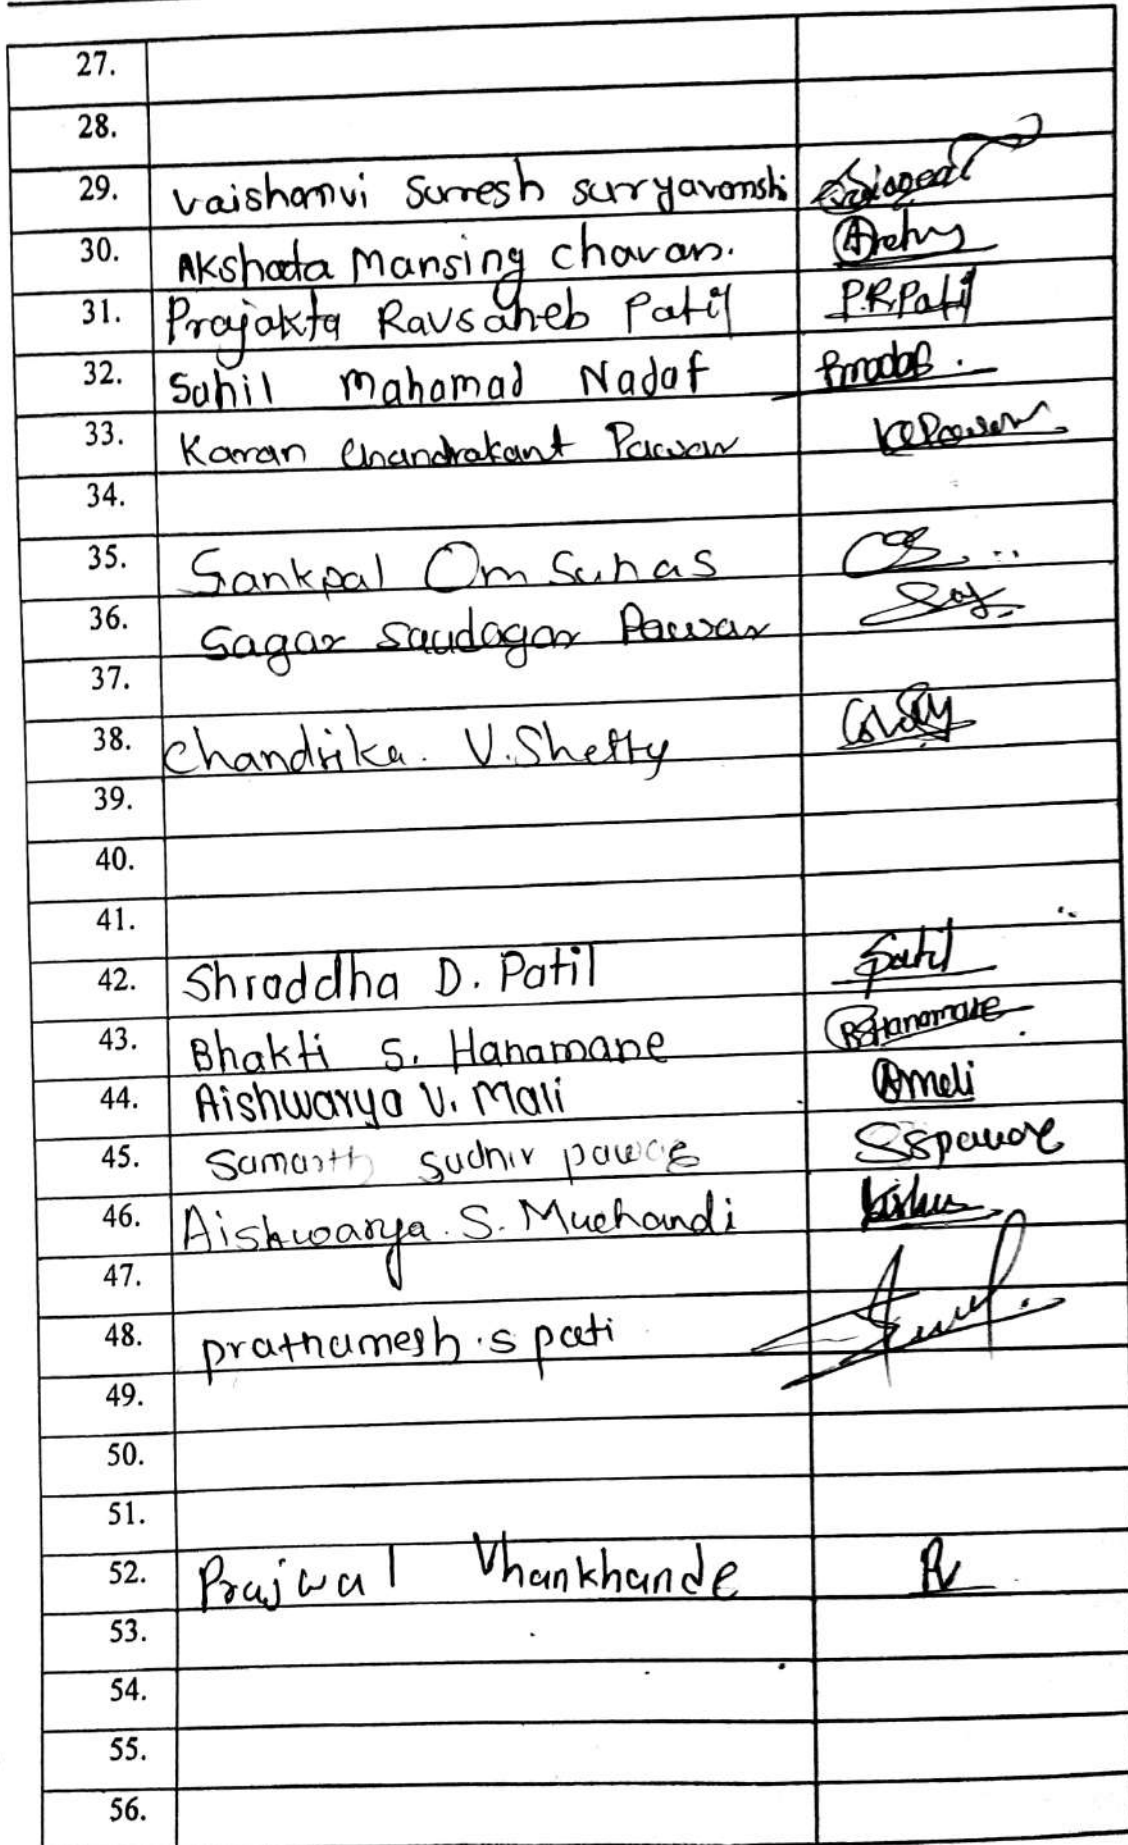 27.
28.
29. Vaishanvi Suresh suryavanshi
30. Akshada Mansing chavan.
31. Prajakta Ravsaheb Patil P.R.Patil
32. Sahil Mahamad Nadaf
33. Karan Chandrakant Pawar
34.
35. Sankpal Om Suhas
36. Sagar Saudagar Pawar
37.
38. Chandrika. V. Shetty
39.
40.
41.
42. Shraddha D. Patil
43. Bhakti S. Hanamane BSHanamane
44. Aishwarya V. Mali Amali
45. Samarth Sudhir pawar SSpawar
46. Aishwarya. S. Muchandi
47.
48. prathamesh.s pati
49.
50.
51.
52. Prajwal Vhankhande PV
53.
54.
55.
56.